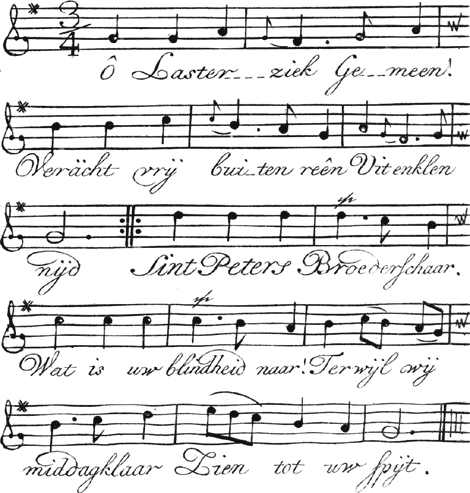 3/4
Ô Laster---ziek Ge--meen!
Verächt vrij bui-ten reên Uit enklen
nijd Sint Peters Broederschaar.
Wat is uw blindheid naar! Terwijl wij
middagklaar Zien tot uw spijt.